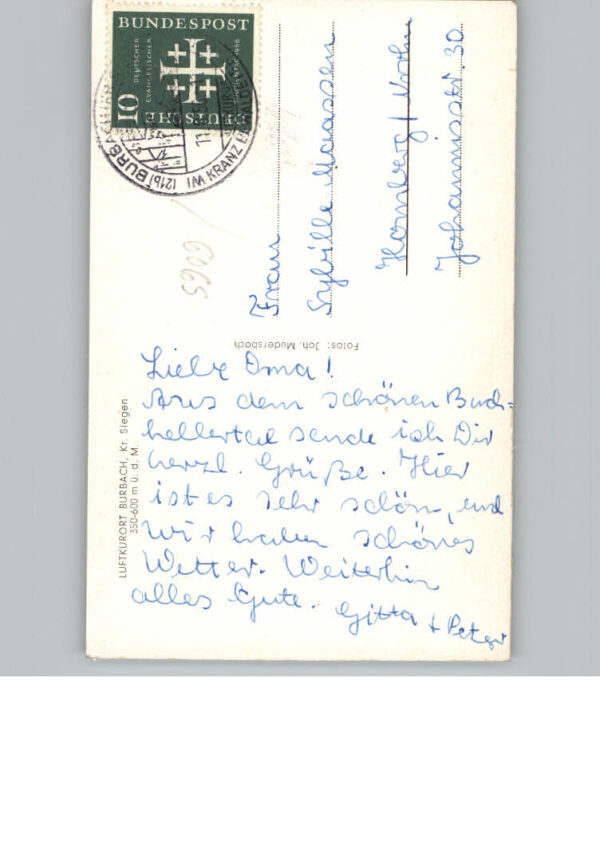 BUNDESPOST
DEUTSCHER
EVANGELISCHER
10
DEUTSCHE
(21b) BURBACH
IM KRANZ
6065
Frau
Sybille Maassen
Homberg /
Johannisstr. 30
Fotos: Joh. Mudersbach
LUFTKURORT BURBACH, Kr. Siegen
350-600 m ü. d. M.
Liebe Oma!
Aus dem schönen Buch=
hellertal sende ich Dir
herzl. Grüße. Hier
ist es sehr schön, und
wir haben schönes
Wetter. Weiterhin
alles Gute. Gitta + Peter